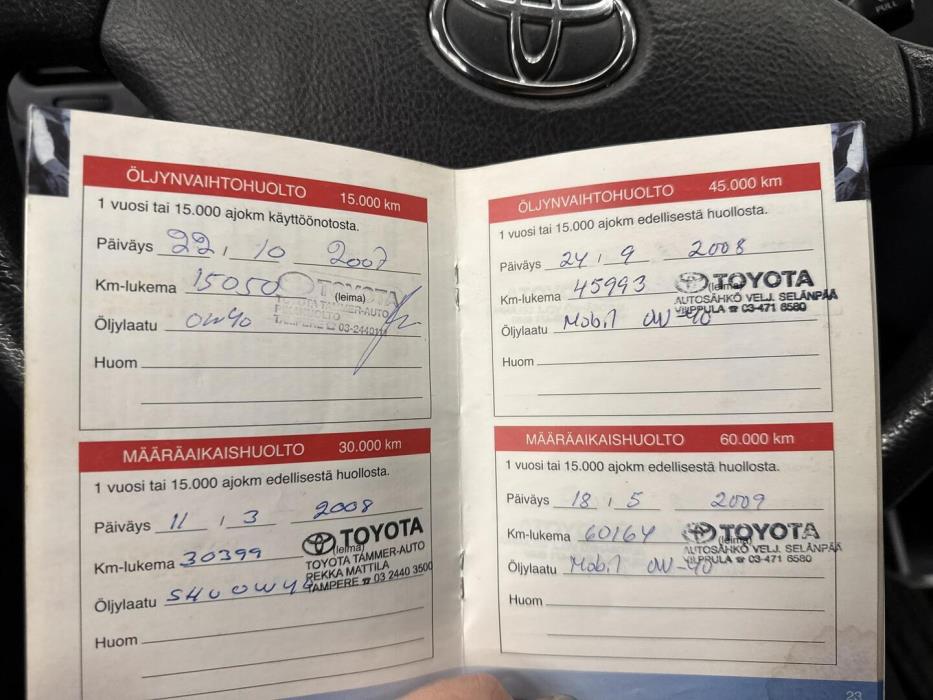 PULL
ÖLJYNVAIHTOHUOLTO 15.000 km
1 vuosi tai 15.000 ajokm käyttöönotosta.
Päiväys 22 , 10 2007
Km-lukema 15050
TOYOTA
(leima)
TOYOTA TAMMER-AUTO
Öljylaatu 0W40
TAMPERE ☎ 03-2440111
Huom
MÄÄRÄAIKAISHUOLTO 30.000 km
1 vuosi tai 15.000 ajokm edellisestä huollosta.
Päiväys 11 , 3 2008
TOYOTA
Km-lukema 30399
(leima)
TOYOTA TAMMER-AUTO
PEKKA MATTILA
TAMPERE ☎ 03 2440 3500
Öljylaatu 0W40
Huom
ÖLJYNVAIHTOHUOLTO 45.000 km
1 vuosi tai 15.000 ajokm edellisestä huollosta.
Päiväys 24 , 9 2008
Km-lukema 45993
(leima) TOYOTA
AUTOSÄHKÖ VELJ. SELÄNPÄÄ
VILPPULA ☎ 03-471 8580
Öljylaatu Mobil 0W-40
Huom
MÄÄRÄAIKAISHUOLTO 60.000 km
1 vuosi tai 15.000 ajokm edellisestä huollosta.
Päiväys 18 , 5 2009
Km-lukema 60164
(leima) TOYOTA
AUTOSÄHKÖ VELJ. SELÄNPÄÄ
VILPPULA ☎ 03-471 8580
Öljylaatu Mobil 0W-40
Huom
23